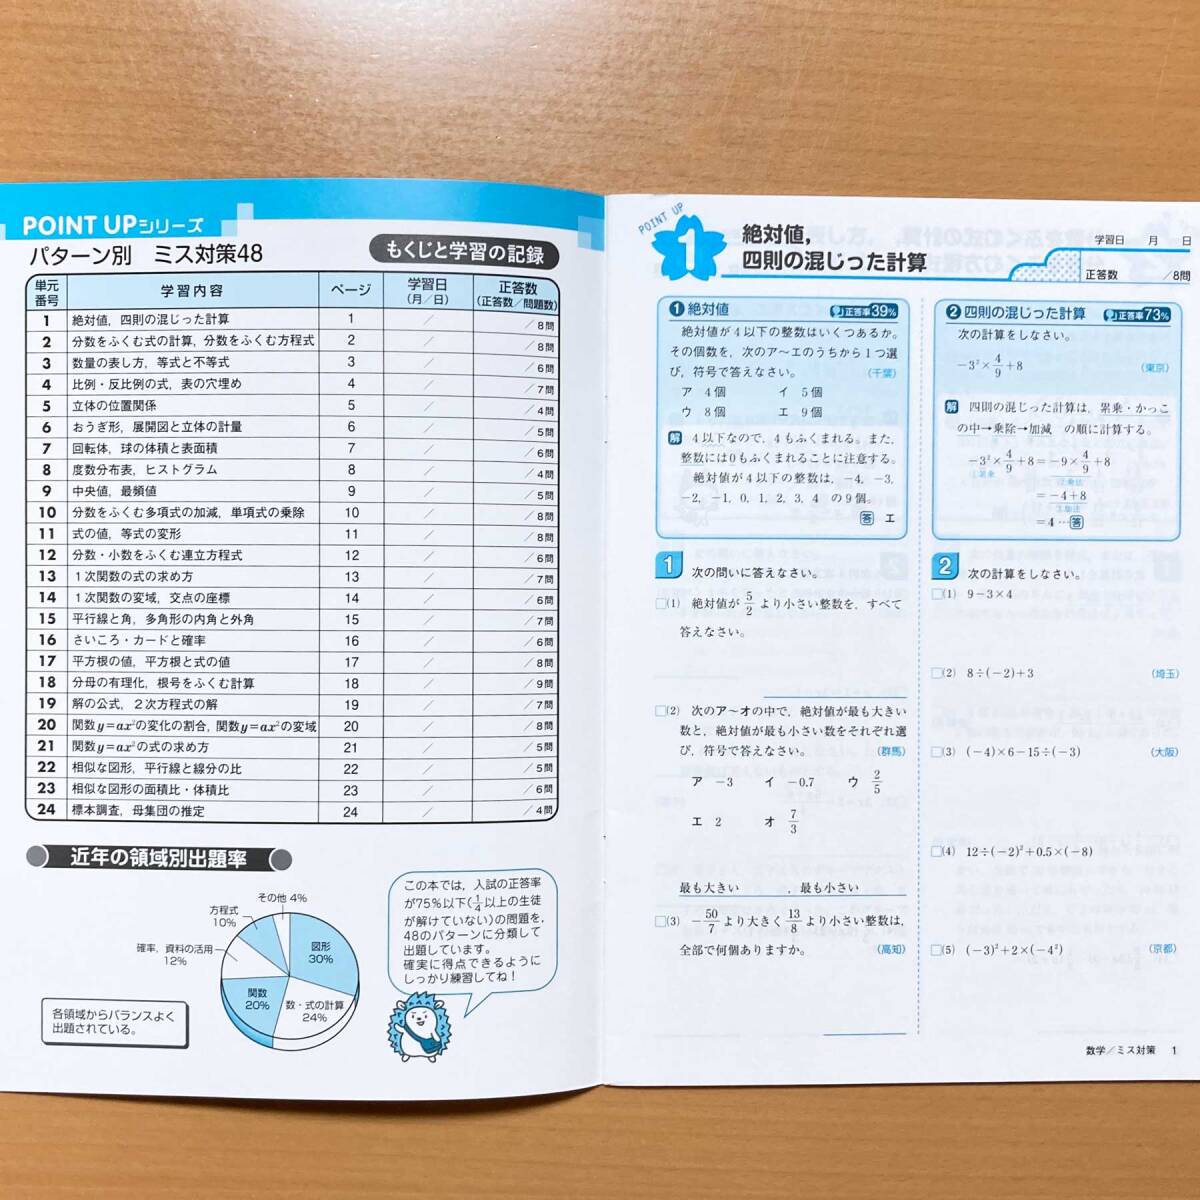 POINT UPシリーズ
パターン別 ミス対策48
もくじと学習の記録
単元番号 学習内容 ページ 学習日(月/日) 正答数(正答数/問題数)
1 絶対値，四則の混じった計算 1 / /8問
2 分数をふくむ式の計算，分数をふくむ方程式 2 / /8問
3 数量の表し方，等式と不等式 3 / /6問
4 比例・反比例の式，表の穴埋め 4 / /7問
5 立体の位置関係 5 / /4問
6 おうぎ形，展開図と立体の計量 6 / /5問
7 回転体，球の体積と表面積 7 / /6問
8 度数分布表，ヒストグラム 8 / /4問
9 中央値，最頻値 9 / /5問
10 分数をふくむ多項式の加減，単項式の乗除 10 / /8問
11 式の値，等式の変形 11 / /8問
12 分数・小数をふくむ連立方程式 12 / /6問
13 1次関数の式の求め方 13 / /7問
14 1次関数の変域，交点の座標 14 / /6問
15 平行線と角，多角形の内角と外角 15 / /7問
16 さいころ・カードと確率 16 / /6問
17 平方根の値，平方根と式の値 17 / /8問
18 分母の有理化，根号をふくむ計算 18 / /9問
19 解の公式，2次方程式の解 19 / /7問
20 関数y=ax²の変化の割合，関数y=ax²の変域 20 / /8問
21 関数y=ax²の式の求め方 21 / /5問
22 相似な図形，平行線と線分の比 22 / /5問
23 相似な図形の面積比・体積比 23 / /6問
24 標本調査，母集団の推定 24 / /4問
近年の領域別出題率
その他 4%
方程式
10%
確率，資料の活用
12%
図形
30%
関数
20%
数・式の計算
24%
各領域からバランスよく
出題されている。
この本では，入試の正答率
が75%以下(1/4以上の生徒
が解けていない)の問題を，
48のパターンに分類して
出題しています。
確実に得点できるように
しっかり練習してね！
POINT UP
1
絶対値，
四則の混じった計算
学習日 月 日
正答数 /8問
1 絶対値 正答率39%
絶対値が4以下の整数はいくつあるか。
その個数を，次のア～エのうちから1つ選
び，符号で答えなさい。 (千葉)
ア 4個 イ 5個
ウ 8個 エ 9個
解 4以下なので，4もふくまれる。また，
整数には0もふくまれることに注意する。
絶対値が4以下の整数は，-4，-3，
-2，-1，0，1，2，3，4 の9個。
答 エ
1 次の問いに答えなさい。
□(1) 絶対値が5/2より小さい整数を，すべて
答えなさい。
□(2) 次のア～オの中で，絶対値が最も大きい
数と，絶対値が最も小さい数をそれぞれ選
び，符号で答えなさい。 (群馬)
ア -3 イ -0.7 ウ 2/5
エ 2 オ 7/3
最も大きい ，最も小さい
□(3) -50/7より大きく13/8より小さい整数は，
全部で何個ありますか。 (高知)
2 四則の混じった計算 正答率73%
次の計算をしなさい。
-3²×4/9+8 (東京)
解 四則の混じった計算は，累乗・かっこ
の中→乗除→加減 の順に計算する。
-3²×4/9+8=-9×4/9+8
①累乗 ②乗法
=-4+8
③加法
=4 …答
2 次の計算をしなさい。
□(1) 9-3×4
□(2) 8÷(-2)+3 (埼玉)
□(3) (-4)×6-15÷(-3) (大阪)
□(4) 12÷(-2)²+0.5×(-8)
□(5) (-3)²+2×(-4²) (京都)
数学／ミス対策 1